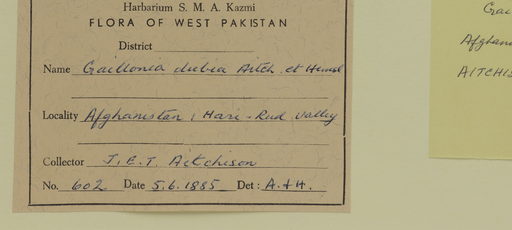 Harbarium S. M. A. Kazmi
FLORA OF WEST PAKISTAN
District
Name Gaillonia dubia Aitch. et Hemsl
Locality Afghanistan, Hari-Rud valley
Collector J. E. T. Aitchison
No. 602 Date 5.6.1885 Det: A.+H.
Gai
Afghani
AITCHIS